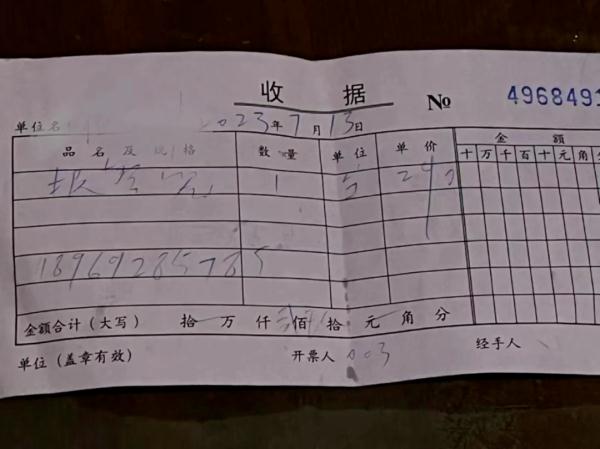 收 据 № 4968491
单位名 2023年7月13日
品名及规格 数量 单位 单价 金额
十万千百十元角分
1 台 240
18969285785
金额合计（大写） 拾 万 仟 佰 拾 元 角 分
单位（盖章有效） 开票人 003 经手人